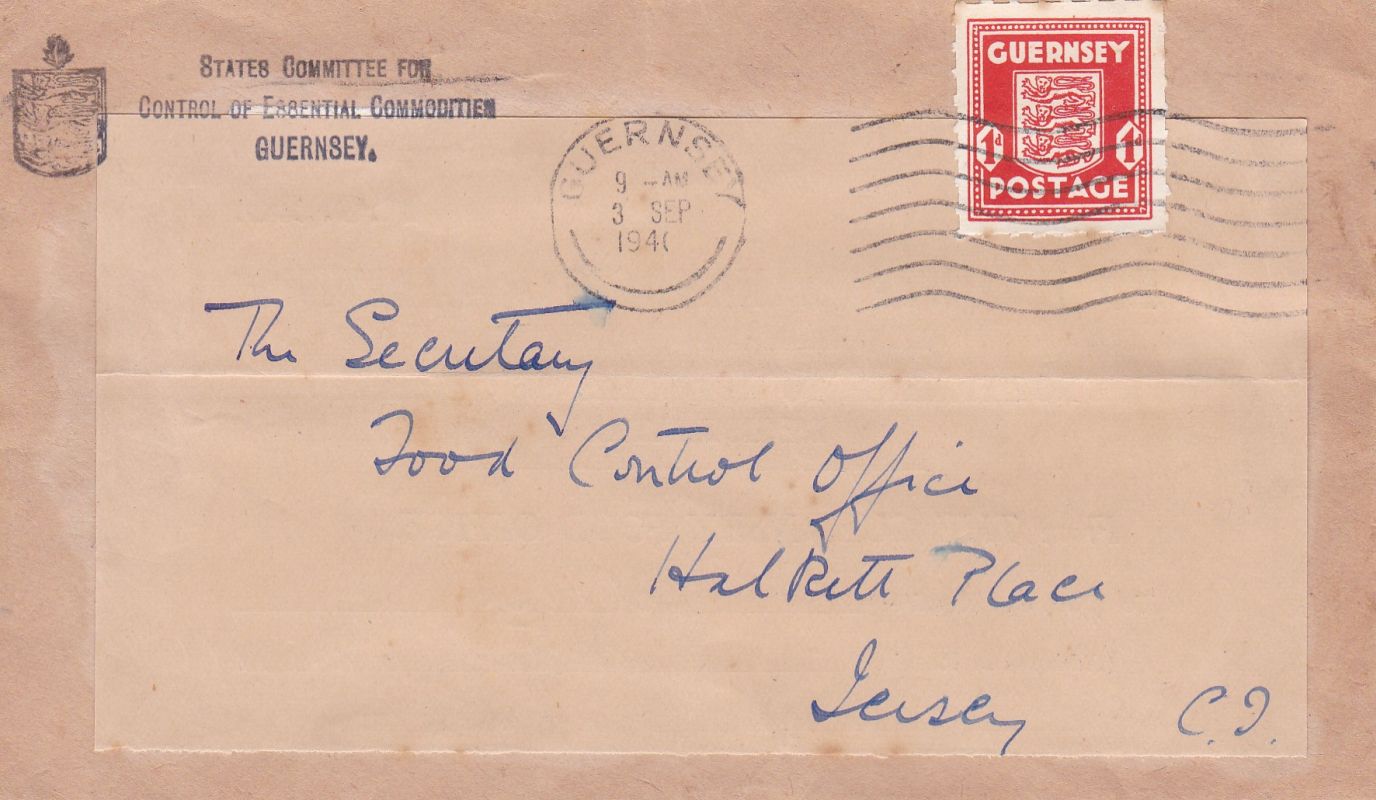 STATES COMMITTEE FOR
CONTROL OF ESSENTIAL COMMODITIES
GUERNSEY.
GUERNSEY
9 - AM
3 SEP
194
GUERNSEY
1d 1d
POSTAGE
The Secretary
Food Control Office
Halkett Place
Jersey C.I.